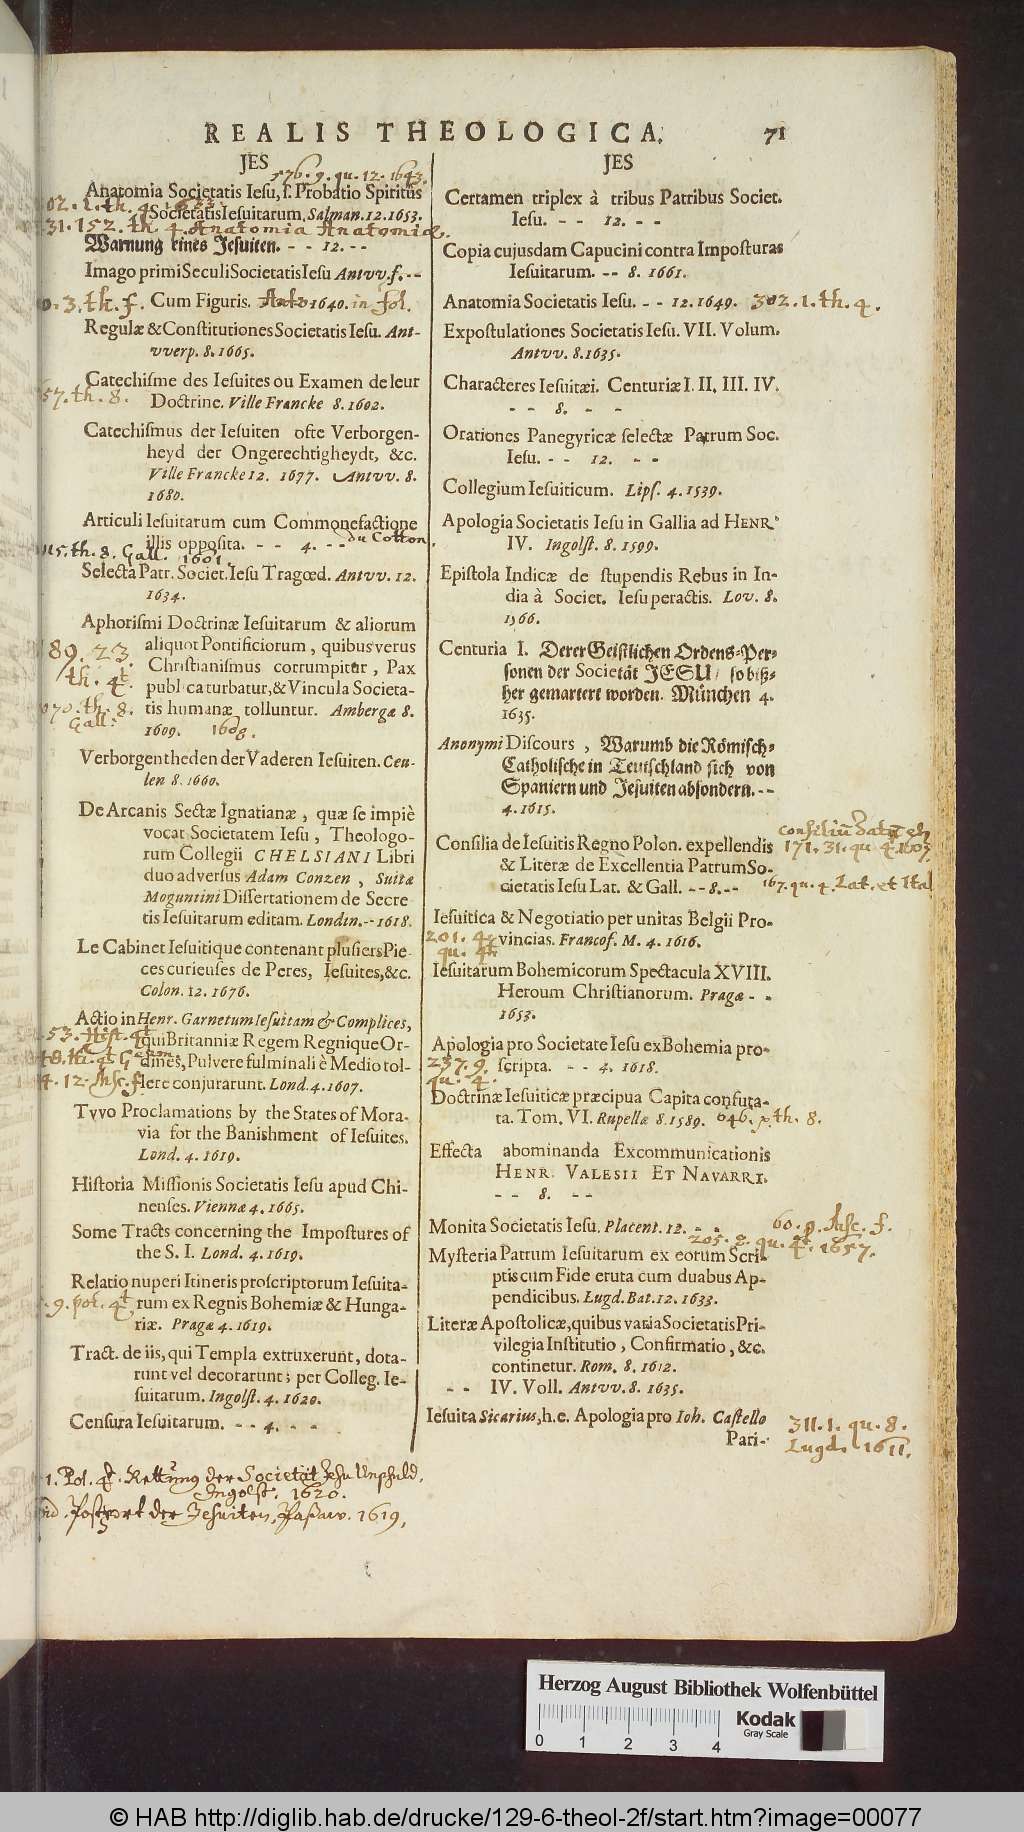 REALIS THEOLOGICA. 71
JES
576. 9. qu. 12. 1643.
Anatomia Societatis Iesu, s. Probatio Spiritûs
02. 1. th. 4. 1633.
Societatis Iesuitarum, Salman. 12. 1653.
31. 152. th. 4. Anatomia Anatomiæ.
Warnung eines Jesuiten. - - 12. - -
Imago primi Seculi Societatis Iesu Antvv. f. - -
0. 3. th. f. Cum Figuris. 1640. in fol.
Regulæ & Constitutiones Societatis Iesu. Ant-
vverp. 8. 1665.
Catechisme des Iesuites ou Examen de leur
57. th. 8. Doctrine. Ville Francke 8. 1602.
Catechismus der Iesuiten ofte Verborgen-
heyd der Ongerechtigheydt, &c.
Ville Francke 12. 1677. Antvv. 8.
1680.
Articuli Iesuitarum cum Commonefactione
illis opposita. - - 4. - - du Cotton.
15. th. 8. Gall. 1601.
Selecta Patr. Societ. Iesu Tragœd. Antvv. 12.
1634.
Aphorismi Doctrinæ Iesuitarum & aliorum
89. 23. aliquot Pontificiorum, quibus verus
Christianismus corrumpitur, Pax
th. 4t.
publica turbatur, & Vincula Societa-
70. th. 8. tis humanæ tolluntur. Ambergæ 8.
Gall. 1609. 1608.
Verborgentheden der Vaderen Iesuiten. Ceu-
len 8. 1660.
De Arcanis Sectæ Ignatianæ, quæ se impiè
vocat Societatem Iesu, Theologo-
rum Collegii CHELSIANI Libri
duo adversus Adam Conzen, Suitæ
Moguntini Dissertationem de Secre
tis Iesuitarum editam. Londin. - - 1618.
Le Cabinet Iesuitique contenant plusiers Pie-
ces curieuses de Peres, Iesuites, &c.
Colon. 12. 1676.
Actio in Henr. Garnetum Iesuitam & Complices,
53. Hist. 4t
qui Britanniæ Regem Regnique Or-
dines, Pulvere fulminali è Medio tol-
4. 12. Msc. f.
lere conjurarunt. Lond. 4. 1607.
Tvvo Proclamations by the States of Mora-
via for the Banishment of Iesuites.
Lond. 4. 1619.
Historia Missionis Societatis Iesu apud Chi-
nenses. Viennæ 4. 1665.
Some Tracts concerning the Impostures of
the S. I. Lond. 4. 1619.
Relatio nuperi Itineris proscriptorum Iesuita-
9. pol. 4t. rum ex Regnis Bohemiæ & Hunga-
riæ. Pragæ 4. 1619.
Tract. de iis, qui Templa extruxerunt, dota-
runt vel decorarunt; per Colleg. Ie-
suitarum. Ingolst. 4. 1620.
Censura Iesuitarum. - - 4. - -
1. Pol. 4t. Rettung der Societät Jesu Unschuld.
Ingolst. 1620.
Postport der Jesuiten, Passaw. 1619.
JES
Certamen triplex à tribus Patribus Societ.
Iesu. - - 12. - -
Copia cujusdam Capucini contra Imposturas
Iesuitarum. - - 8. 1661.
Anatomia Societatis Iesu. - - 12. 1649. 302. 1. th. 4.
Expostulationes Societatis Iesu. VII. Volum.
Antvv. 8. 1635.
Characteres Iesuitæi. Centuriæ I. II. III. IV.
- - 8. - -
Orationes Panegyricæ selectæ Patrum Soc.
Iesu. - - 12. - -
Collegium Iesuiticum. Lips. 4. 1539.
Apologia Societatis Iesu in Gallia ad HENR.
IV. Ingolst. 8. 1599.
Epistola Indicæ de stupendis Rebus in In-
dia à Societ. Iesu peractis. Lov. 8.
1566.
Centuria I. Derer Geistlichen Ordens-Per-
sonen der Societät JESU / so biß-
her gemartert worden. München 4.
1635.
Anonymi Discours, Warumb die Römisch-
Catholische in Teutschland sich von
Spaniern und Jesuiten absondern. - -
4. 1615.
Consilia de Iesuitis Regno Polon. expellendis
171. 31. qu. 4. 1607.
& Literæ de Excellentia Patrum So-
cietatis Iesu Lat. & Gall. - - 8. - - 167. qu. 4. Lat. et Ital
Iesuitica & Negotiatio per unitas Belgii Pro-
201. 4. vincias. Francof. M. 4. 1616.
qu. 4t.
Iesuitarum Bohemicorum Spectacula XVIII.
Heroum Christianorum. Pragæ - -
1653.
Apologia pro Societate Iesu ex Bohemia pro-
237. 9. scripta. - - 4. 1618.
qu. 4.
Doctrinæ Iesuiticæ præcipua Capita confuta-
ta. Tom. VI. Rupellæ 8. 1589. 646. th. 8.
Effecta abominanda Excommunicationis
HENR. VALESII ET NAVARRI.
- - 8. - -
Monita Societatis Iesu. Placent. 12. - - 60. 9. Msc. f.
205. 2. qu. 4t. 1657.
Mysteria Patrum Iesuitarum ex eorum Scri-
ptis cum Fide eruta cum duabus Ap-
pendicibus. Lugd. Bat. 12. 1633.
Literæ Apostolicæ, quibus varia Societatis Pri-
vilegia Institutio, Confirmatio, &c.
continetur. Rom. 8. 1612.
- - IV. Voll. Antvv. 8. 1635.
Iesuita Sicarius, h. e. Apologia pro Ioh. Castello
311. 1. qu. 8.
Pari-
Lugd. 1611.
Herzog August Bibliothek Wolfenbüttel
0 1 2 3 4
Kodak
Gray Scale
© HAB http://diglib.hab.de/drucke/129-6-theol-2f/start.htm?image=00077